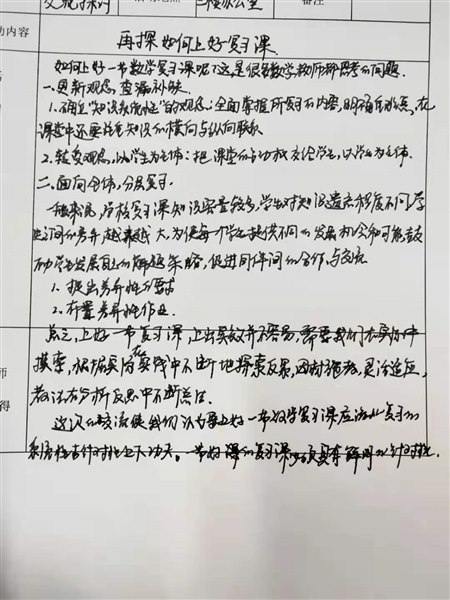 交流探讨
活动地点
二楼办公室
备注
动内容
再探如何上好复习课
如何上好一节数学复习课呢?这是很多数学教师都思考的问题.
一.更新观念,查漏补缺.
1.确立"知识系统性"的观念:全面掌握所复习的内容,明确重难点,在
课堂中还要注重知识的横向与纵向联系
2.转变观念,以学生为主体:把课堂的主动权交给学生,以学生为主体.
二.面向全体,分层复习.
一般来说,学校复习课知识容量较多,学生对知识遗忘程度不同,学
生之间的差异越来越大,为使每个学生提供不同的发展机会和可能,鼓
励学生发展自己的解题策略,促进同伴间的合作与交流
1.提出差异性的要求
2.布置差异性作业.
总之,上好一节复习课,上出实效并不容易,需要我们在实践中
摸索,根据实际在实践中不断地探索反思,因材施教,灵活适应,
教法在分析反思中不断总结.
师
得
这次的交流使我们认为要上好一节数学复习课应该在复习的
系统性与针对性上下功夫。一节好课的复习课